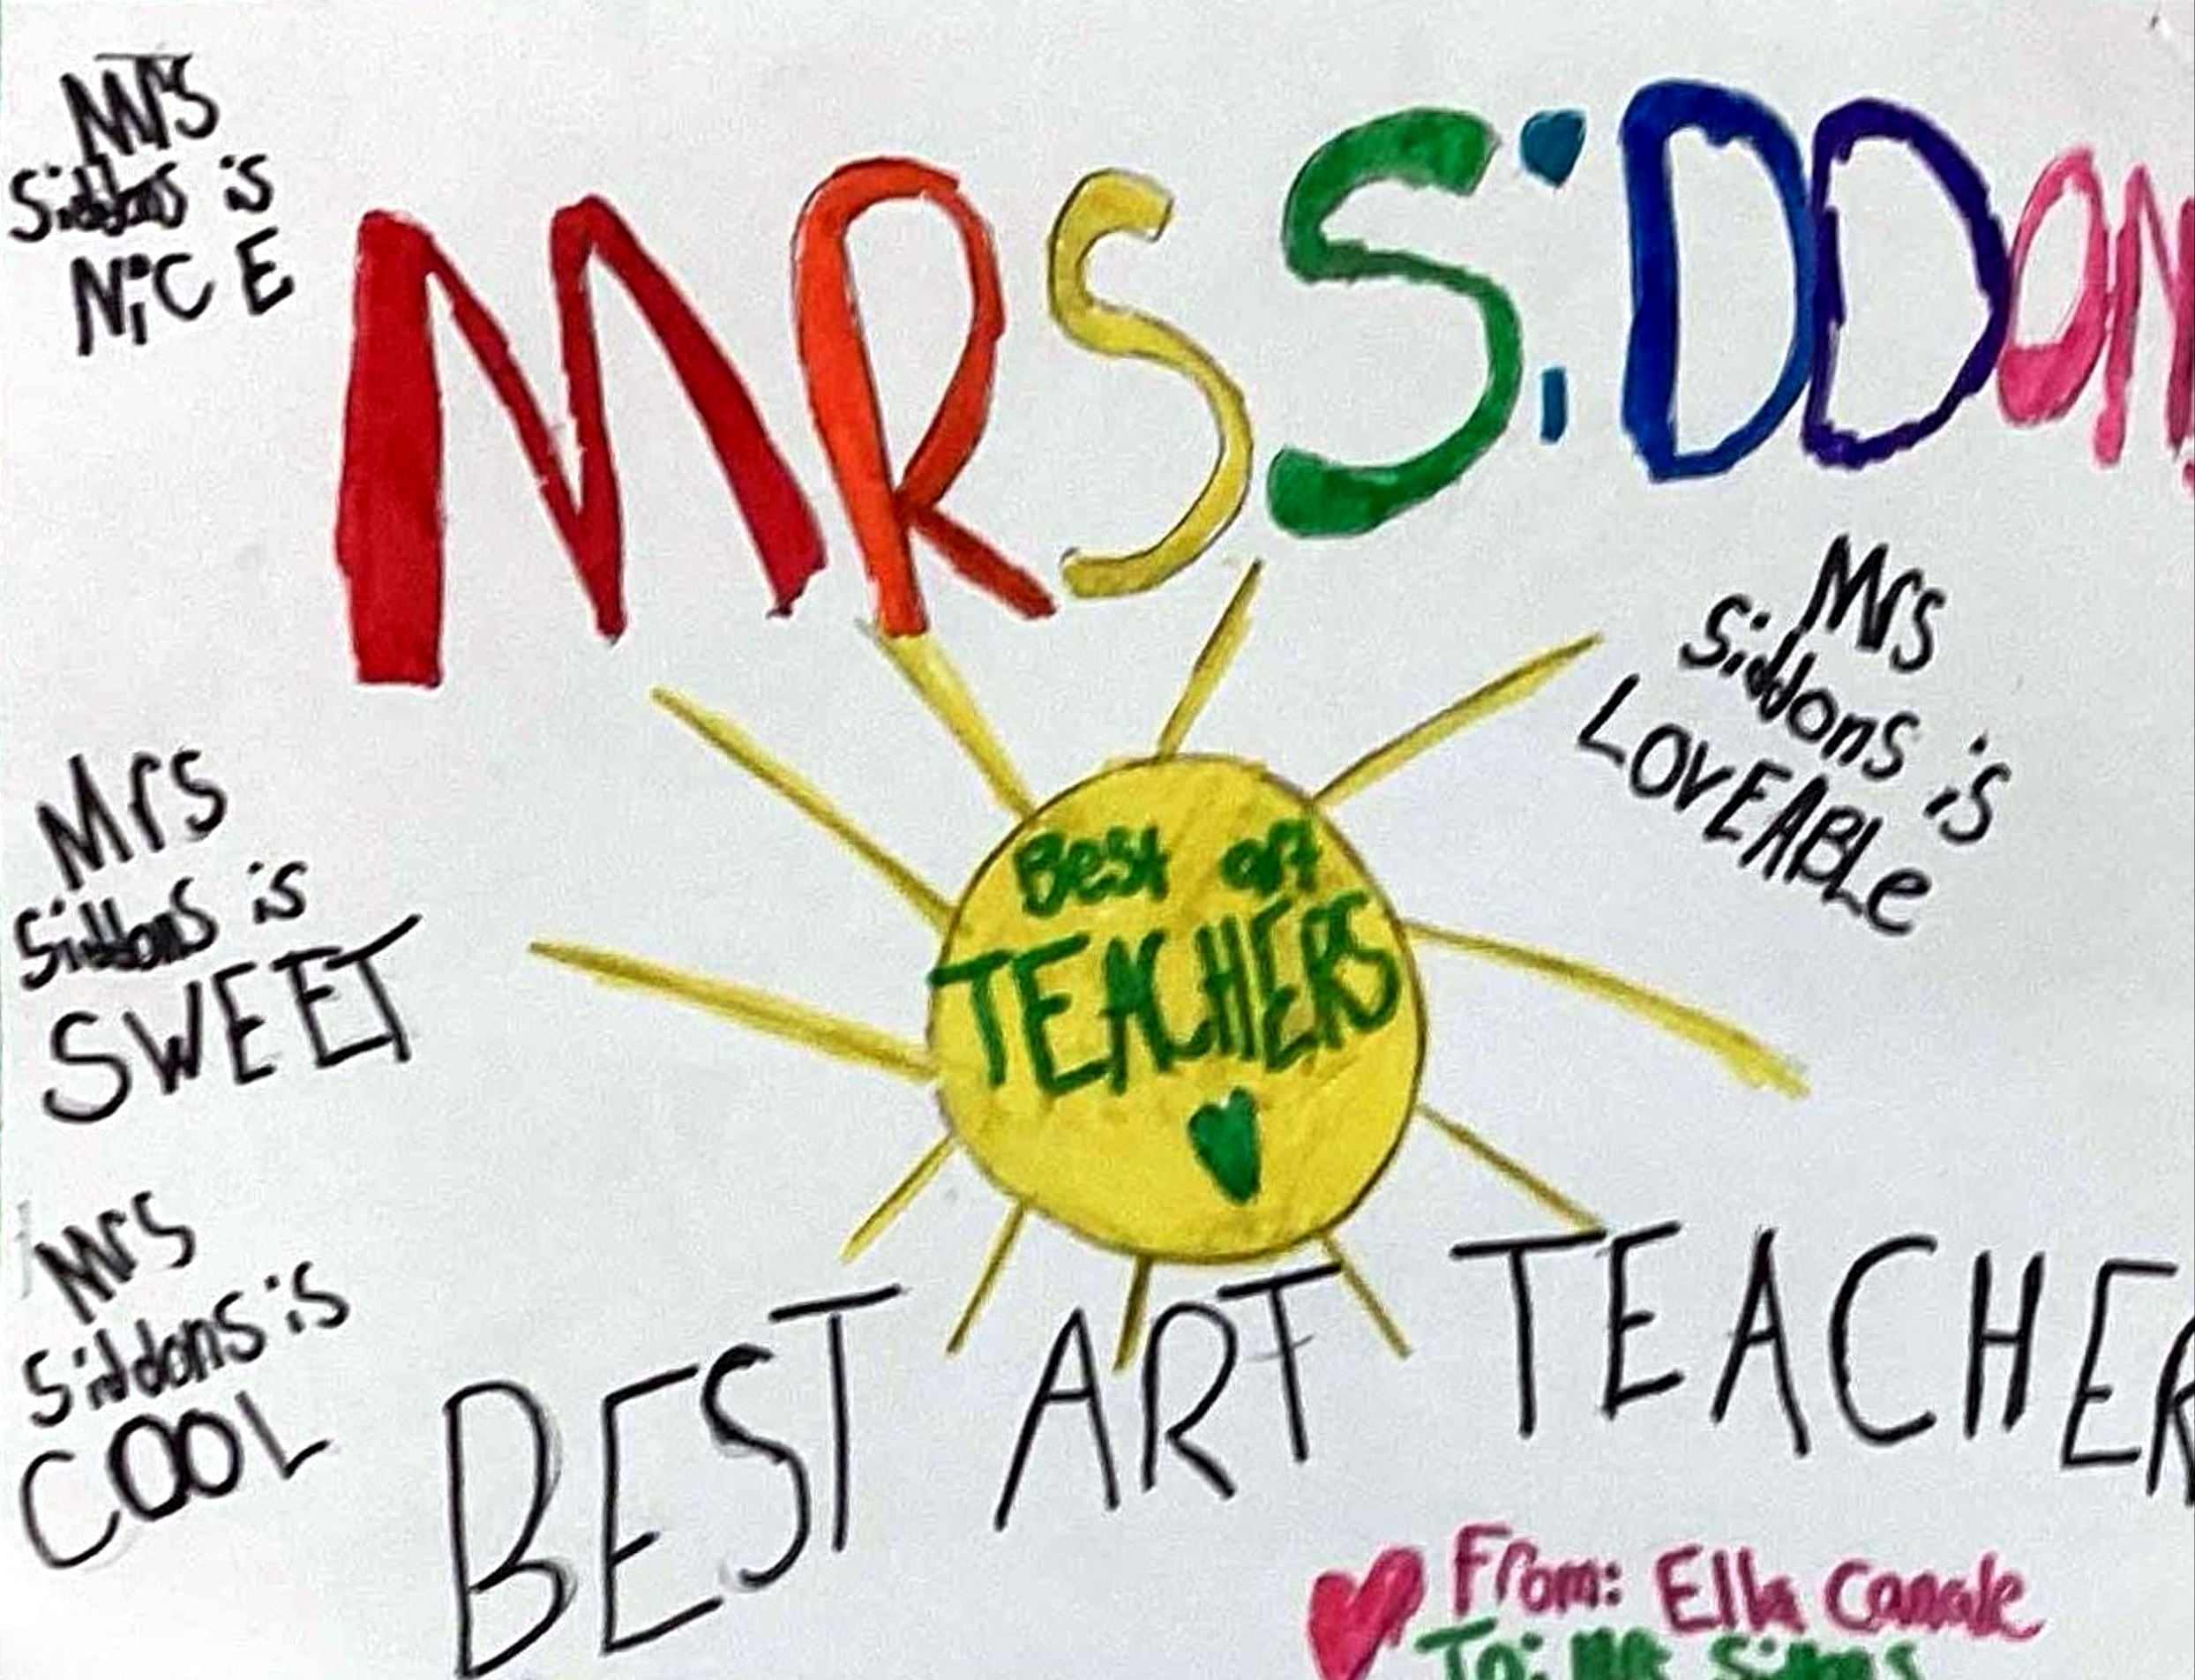 Mrs
Siddons is
NiCE
MRS SiDDON
Mrs
Siddons is
LOVEABLe
Best art
TEACHERS
Mrs
Siddons is
SWEET
Mrs
Siddons is
COOL
BEST ART TEACHER
From: Ella Canale
To: